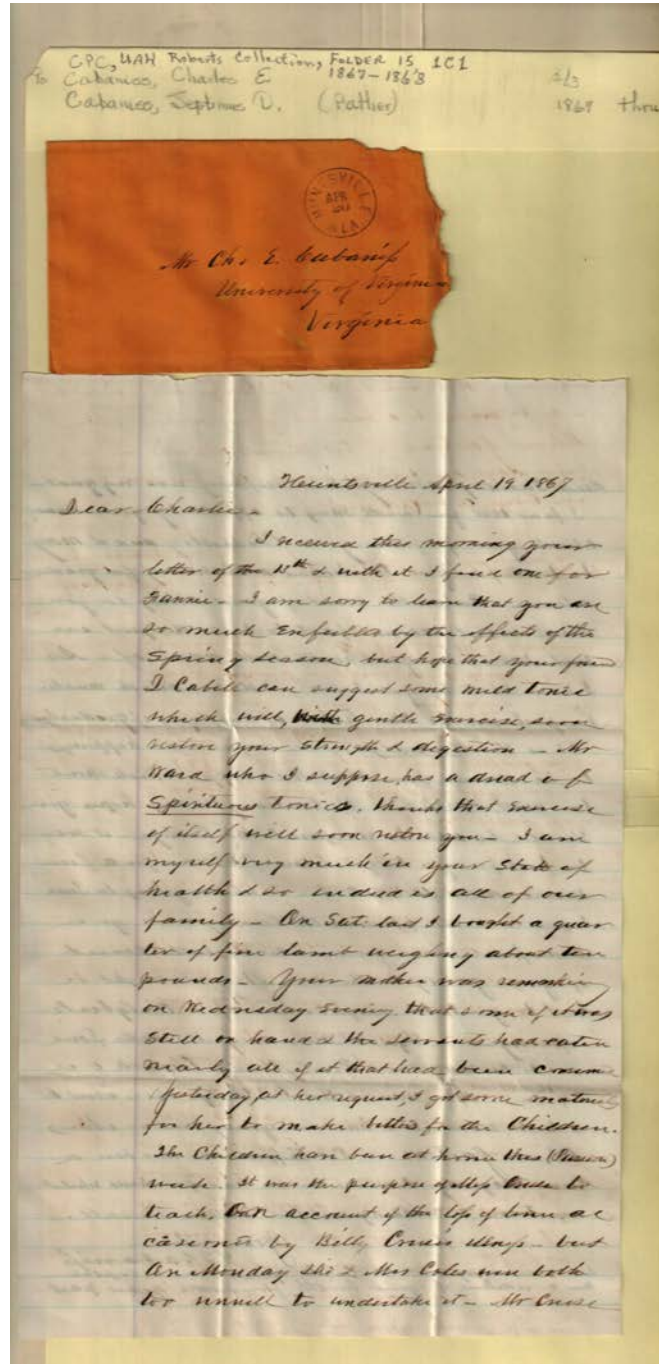 CPC, UAH Roberts Collection, FOLDER 15 1C1
To Cabaniss, Charles E 1867-1868 2/3
Cabaniss, Septimus D. (Father) 1867 throu
HUNTSVILLE
APR
20
ALA.
Mr Chs E. Cabaniss
University of Virginia
Virginia
Huntsville April 19 1867
Dear Charlie.
I received this morning your
letter of the 15th & with it I find one for
Fannie. I am sorry to learn that you are
so much enfeebled by the effects of the
Spring season, but hope that your friend
Cabell can suggest some mild tonic
which will, with gentle exercise, soon
restore your strength & digestion - Mr
Ward who I suppose has a dread of
Spirituous tonics, thinks that exercise
of itself will soon restore you - I am
myself very much in your state of
health & so indeed is all of our
family - On Sat. last I bought a quar
ter of fine lamb weighing about ten
pounds - Your mother was remarking
on Wednesday evening that some of it was
still on hand & the servants had eaten
nearly all of it that had been consum
Yesterday, at her request, I got some material
for her to make bitters for the Children.
The Children have been at home this (Passion)
week. It was the purpose of Miss to
teach, on account of the loss of time
by Billy - but
On Monday she & Mrs Coles were both
too unwell to undertake it - Mr Cruse